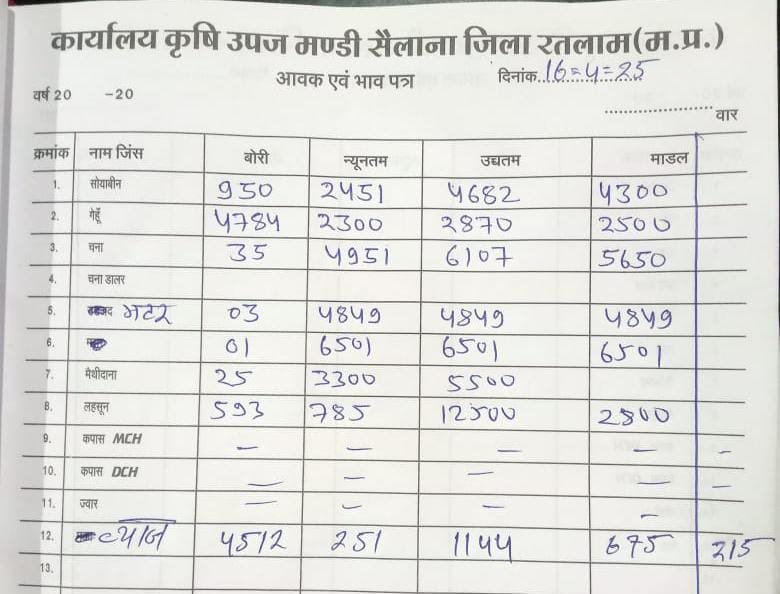 कार्यालय कृषि उपज मण्डी सैलाना जिला रतलाम(म.प्र.)
आवक एवं भाव पत्र दिनांक 16=4=25
वर्ष 20 -20 वार
क्रमांक नाम जिंस बोरी न्यूनतम उच्चतम माडल
1. सोयाबीन 950 2451 4682 4300
2. गेहूँ 4784 2300 2870 2500
3. चना 35 4951 6107 5650
4. चना डालर
5. मटर 03 4849 4849 4849
6. 01 6501 6501 6501
7. मैथीदाना 25 3300 5500
8. लहसून 593 785 12500 2800
9. कपास MCH — — — — –
10. कपास DCH — — — — –
11. ज्वार — – — –
12. प्याज 4512 251 1144 675 215
13.